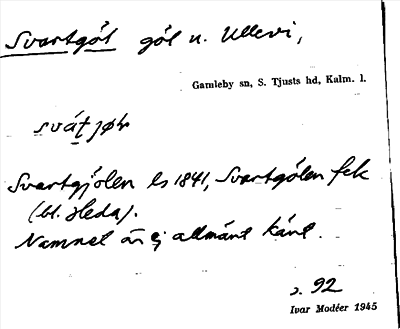 Svartgöl göl n. Ullevi,
Gamleby sn, S. Tjusts hd, Kalm. l.
Svartgjölen ls 1841, Svartgölen fek
(bl. Heda).
Namnet är ej allmänt känt.
s. 92
Ivar Modéer 1945